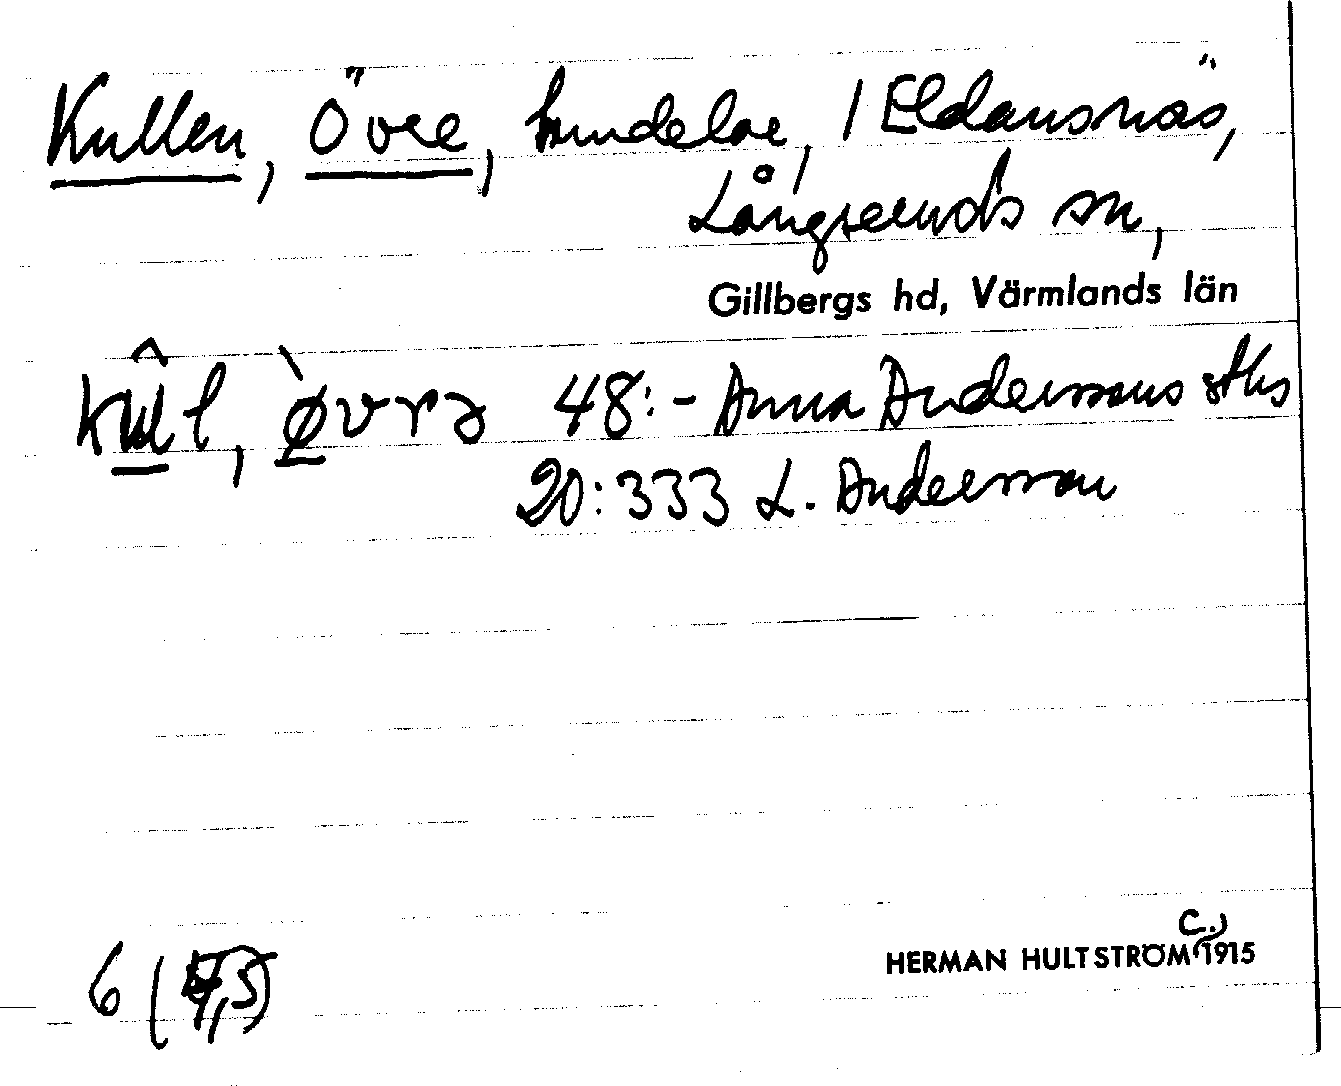 Kullen, Övre, hmdelar, 1 Eldansnäs,
Långseruds sn,
Gillbergs hd, Värmlands län
kul l, øvrə 48:- Anna Anderssons sths
20:333 L. Andersson
HERMAN HULTSTRÖM (c.) 1915
6 (4,5)